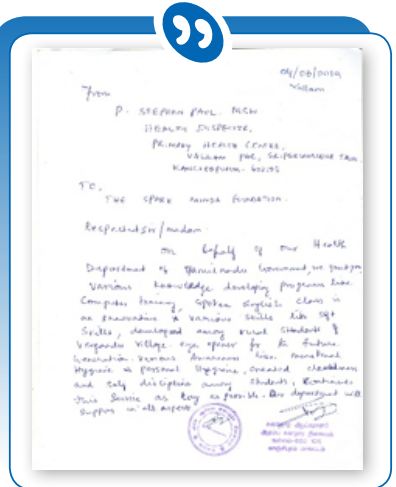 From
Vallam
P. STEPHAN PAUL. MSW
HEALTH INSPECTOR,
PRIMARY HEALTH CENTRE,
VALLAM PHC, SRIPERUMBUDUR TALUK
KANCHEEPURAM
TO,
THE SPARK MINDA FOUNDATION.
Respected sir/madam
On behalf of our Health
Department of Tamilnadu Government, we
various knowledge developing programs like
Computer training, Spoken English class is
an innovative & various skills like soft
Skills, developed among rural students of
village. eye opener for the future
Generation. various Awareness like. menstrual
Hygiene & personal Hygiene, created cleanliness
and self discipline among students,
this Service as long as possible. Our department will
support in all aspects.